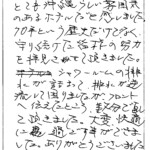 とても素晴らしい雰囲気
のあるホテルだと感じました。
70年という歴史だけでなく、
守り続けた従業員の努力
を拝見させて頂きました。
シャワールームの排水
が詰まって 排水が逆
流して困りましたが フロント
へ伝えたところ 数分で直し
て頂きました。大変 快適
に 過ごす事ができま
した。ありがとうございました